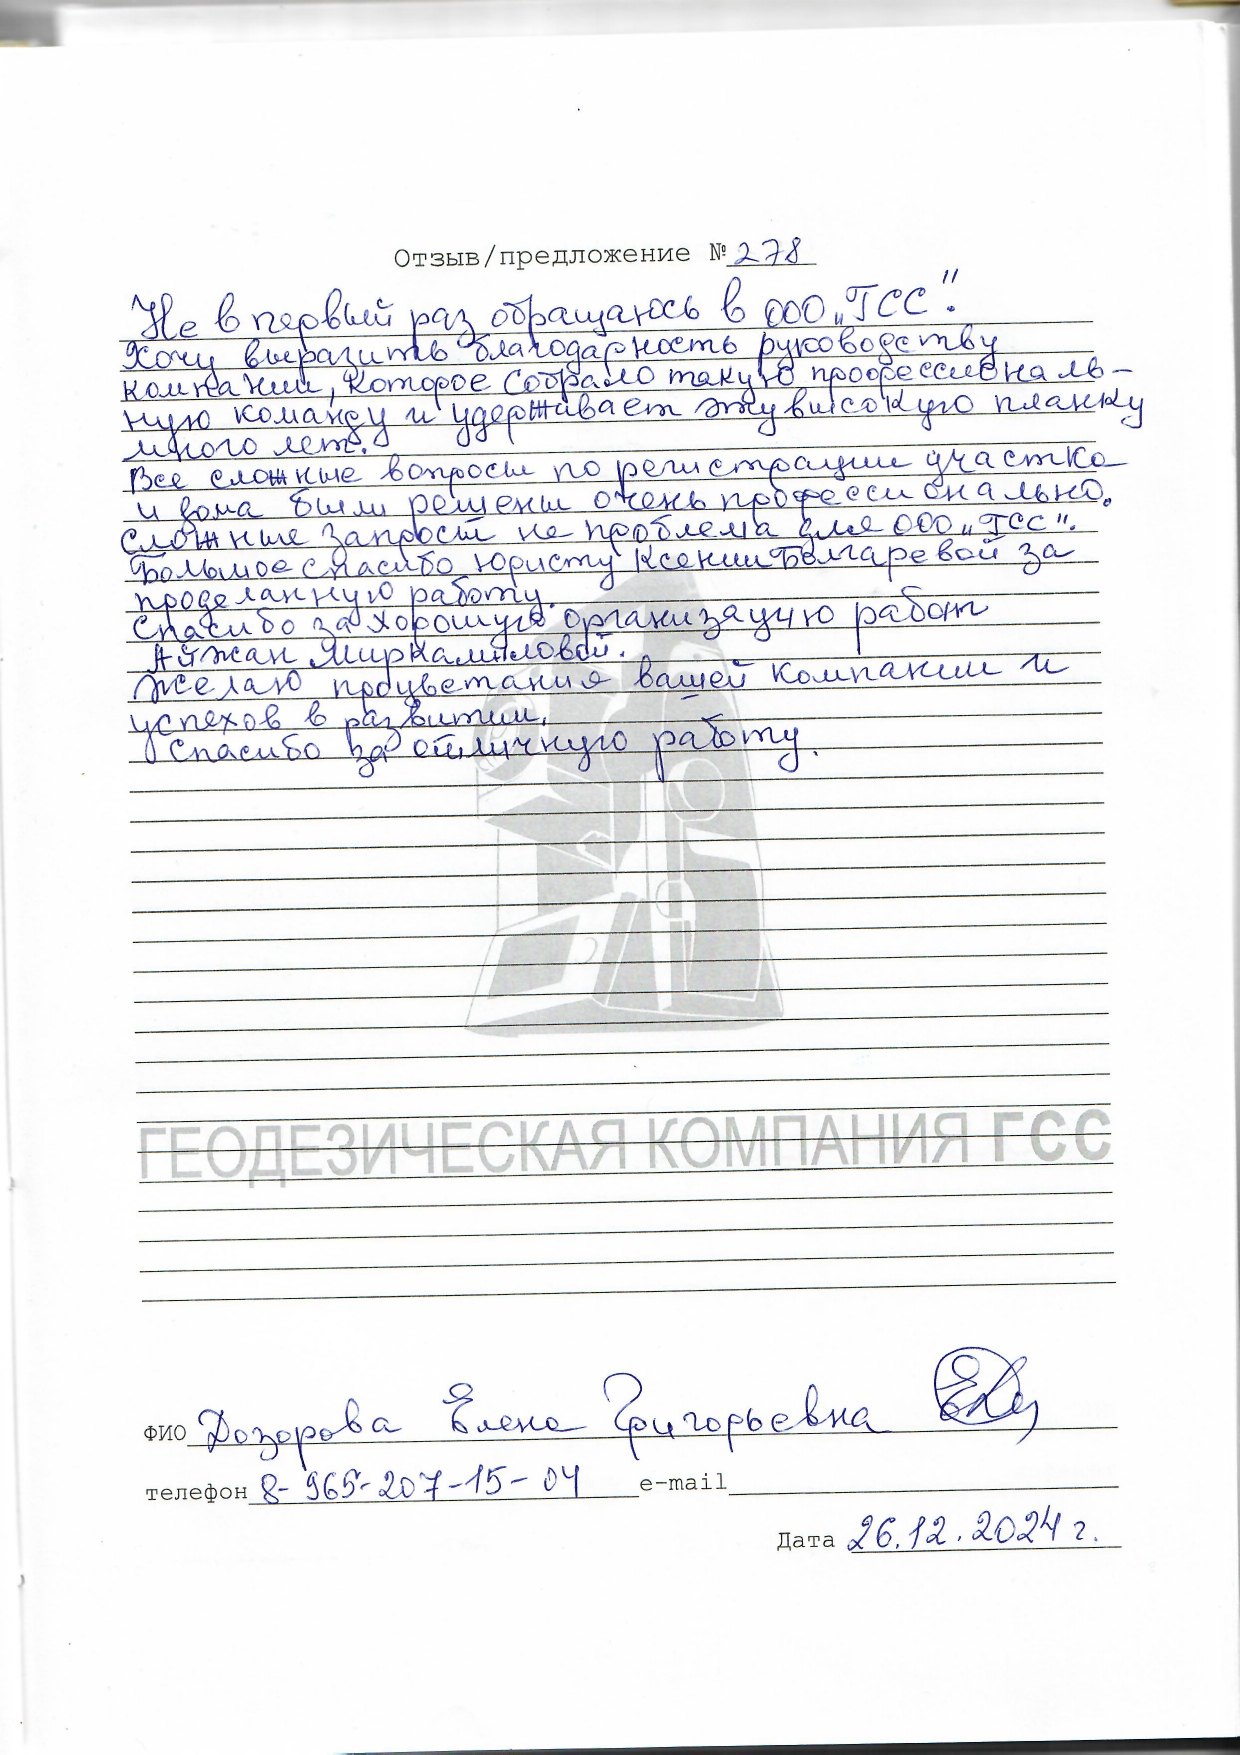 Отзыв/предложение № 278
Не в первый раз обращаюсь в ООО „ГСС".
Хочу выразить благодарность руководству
компании, которое собрало такую профессиональ-
ную команду и удерживает эту высокую планку
много лет.
Все сложные вопросы по регистрации участка
и дома были решены очень профессионально.
Сложные запросы не проблема для ООО „ГСС".
Большое спасибо юристу Ксении Болгаревой за
проделанную работу.
Спасибо за хорошую организацию работ
Айжан Миркамиловой.
Желаю процветания вашей компании и
успехов в развитии.
Спасибо за отличную работу.
ГЕОДЕЗИЧЕСКАЯ КОМПАНИЯ ГСС
ФИО Дозорова Елена Григорьевна
телефон 8-965-207-15-04 e-mail
Дата 26.12.2024 г.